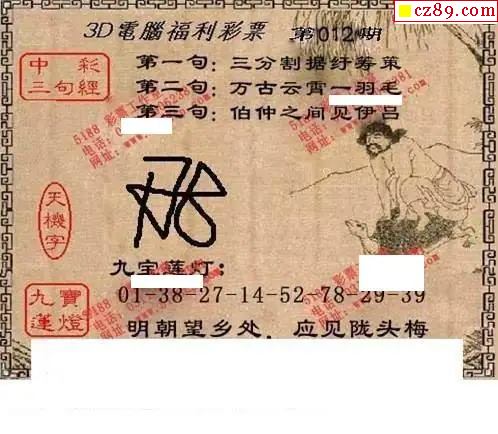 cz89.com
3D電腦福利彩票 第012期
中彩
三句經
第一句：三分割据纡筹策
第二句：万古云霄一羽毛
第三句：伯仲之间见伊吕
天機字
九宝莲灯：
九寶蓮燈
01-38-27-14-52-78-29-39
明朝望乡处，应见陇头梅